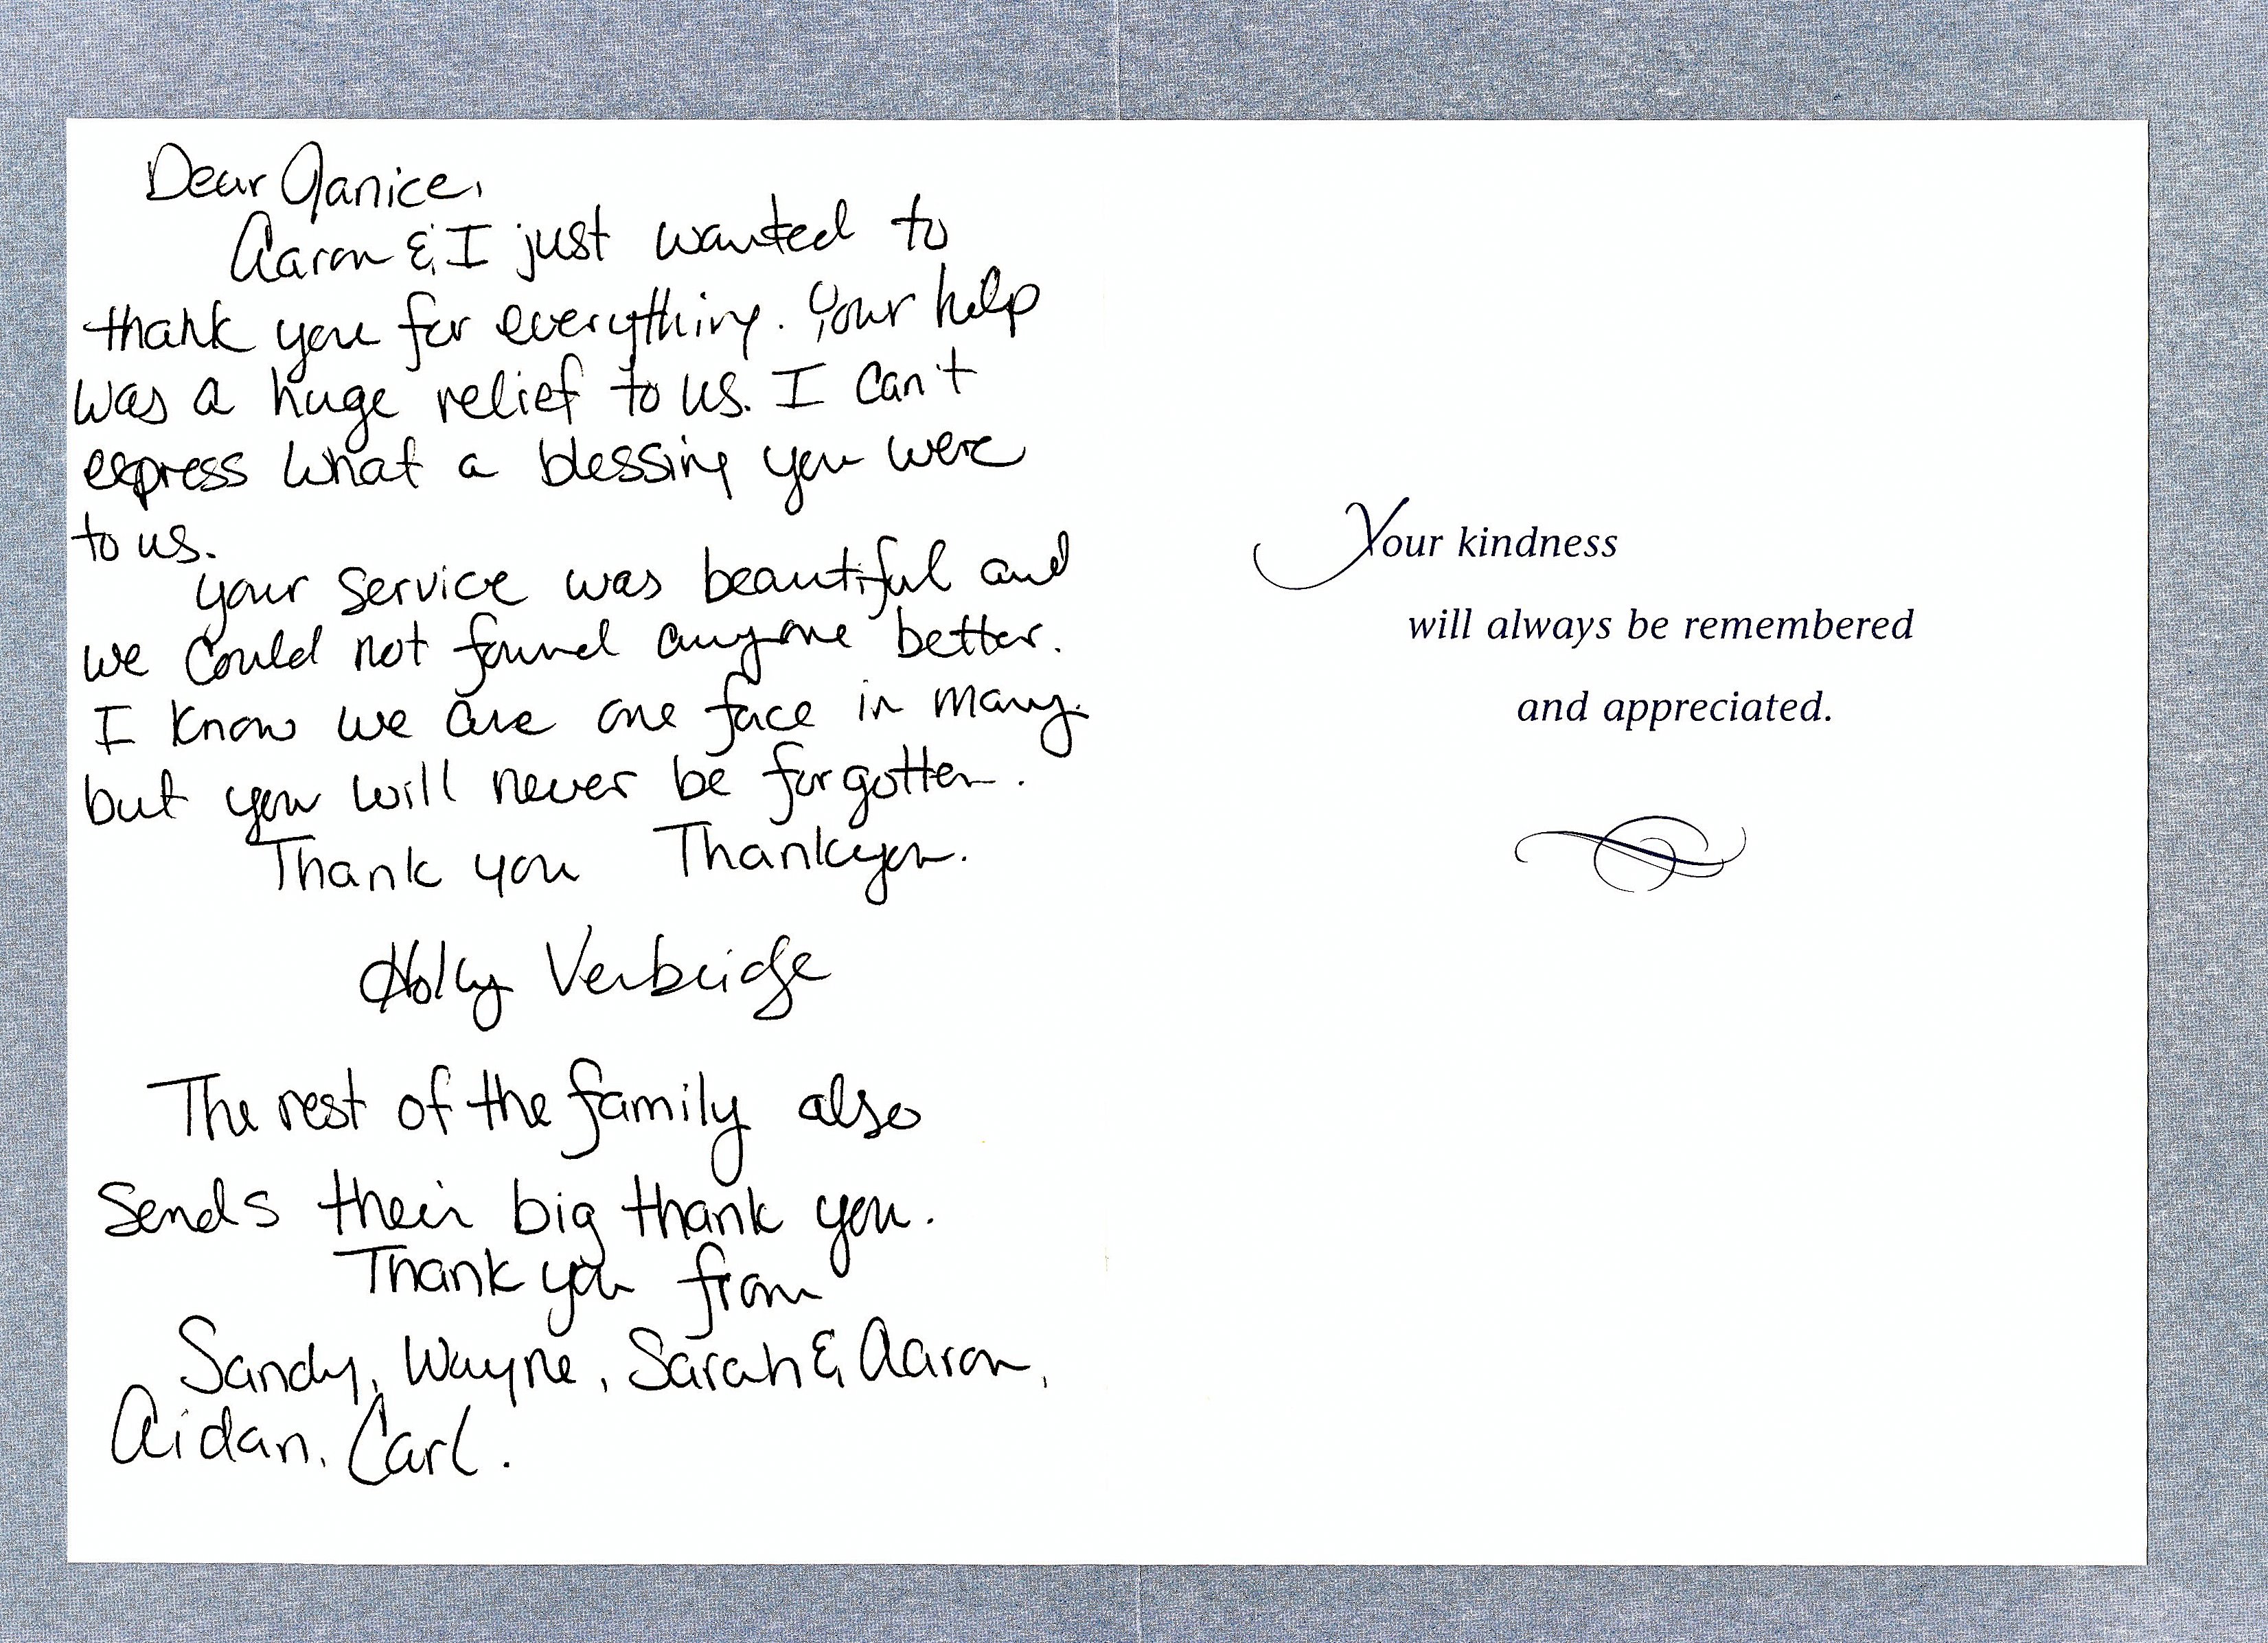 Dear Janice,
Aaron & I just wanted to
thank you for everything. Your help
was a huge relief to us. I can't
express what a blessing you were
to us.
Your service was beautiful and
we could not found anyone better.
I know we are one face in many.
but you will never be forgotten.
Thank you Thankyou.
Holly Verbridge
The rest of the family also
sends their big thank you.
Thank you from
Sandy, Wayne, Sarah & Aaron,
Aidan, Carl.
Your kindness
will always be remembered
and appreciated.